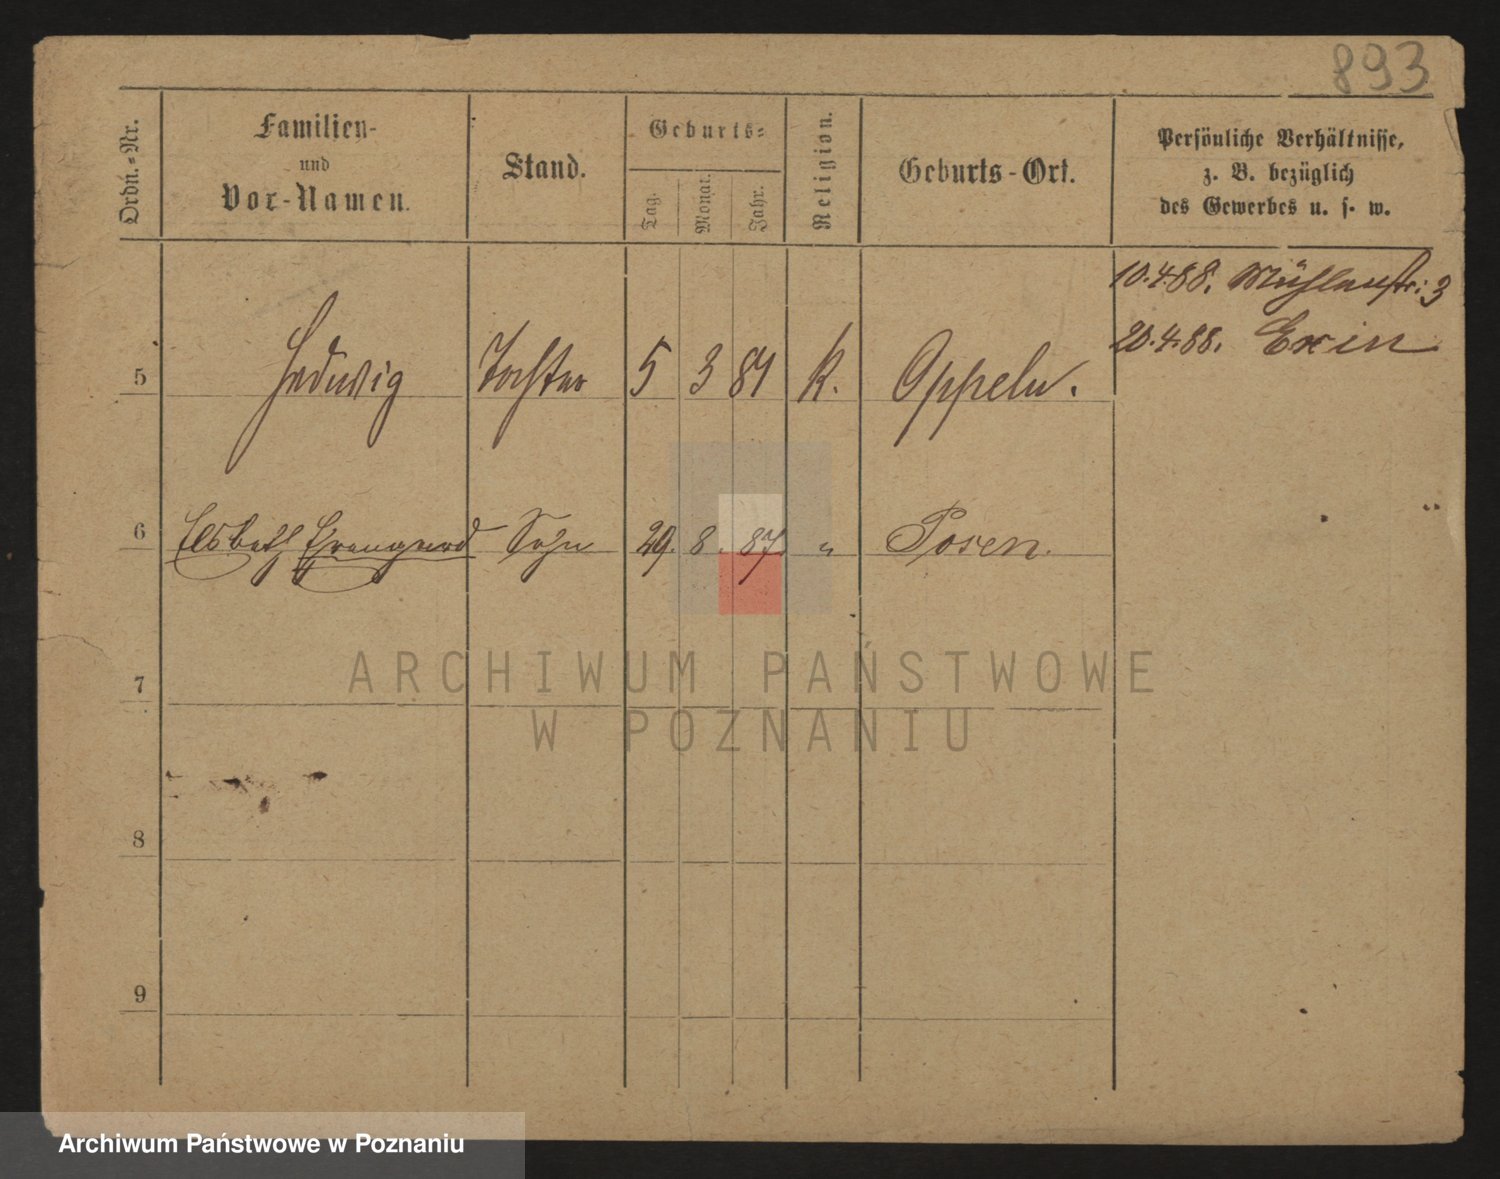 893
Ordn.-Nr.
Familien-
und
Vor-Namen.
Stand.
Geburts-
Tag.
Monat.
Jahr.
Religion.
Geburts-Ort.
Persönliche Verhältnisse,
z. B. bezüglich
des Gewerbes u. s. w.
10.4.88. Mühlenstr: 3
20.4.88. Exin
5 Hedwig Tochter 5 3 81 K. Oppeln.
6 Elsbeth Sohn 29. 8. 87. " Posen.
7
8
9
ARCHIWUM PAŃSTWOWE
W POZNANIU
Archiwum Państwowe w Poznaniu